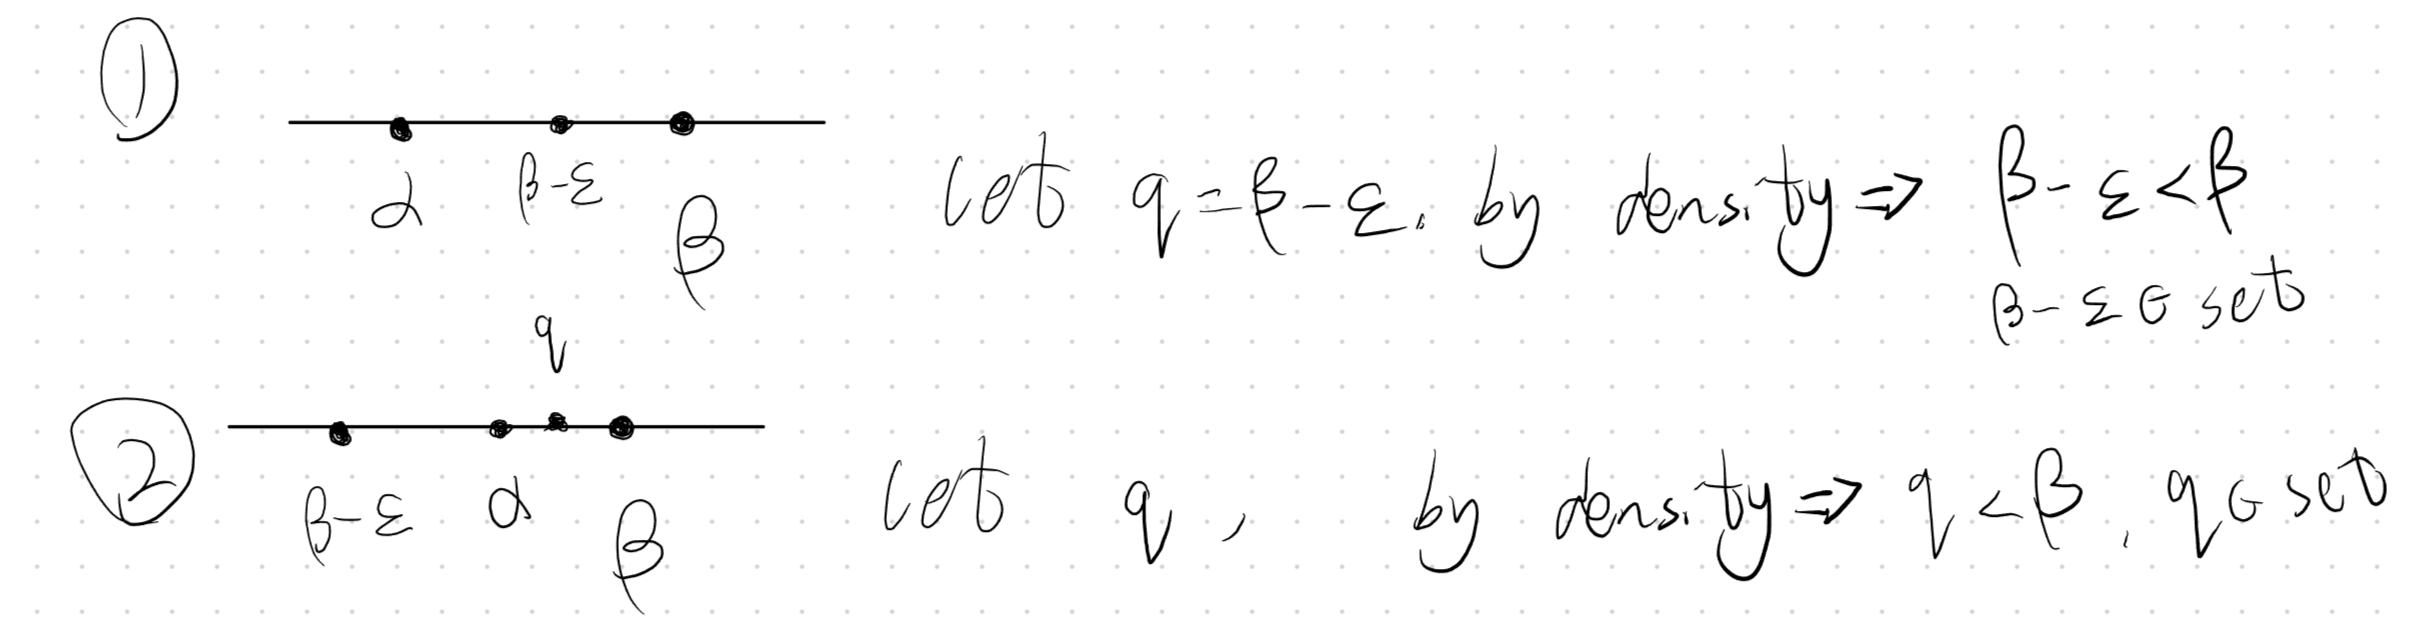 ①
α β-ε β
let q=β-ε. by density ⇒ β-ε<β
β-ε ∈ set
q
②
β-ε α β
let q, by density ⇒ q<β, q∈ set